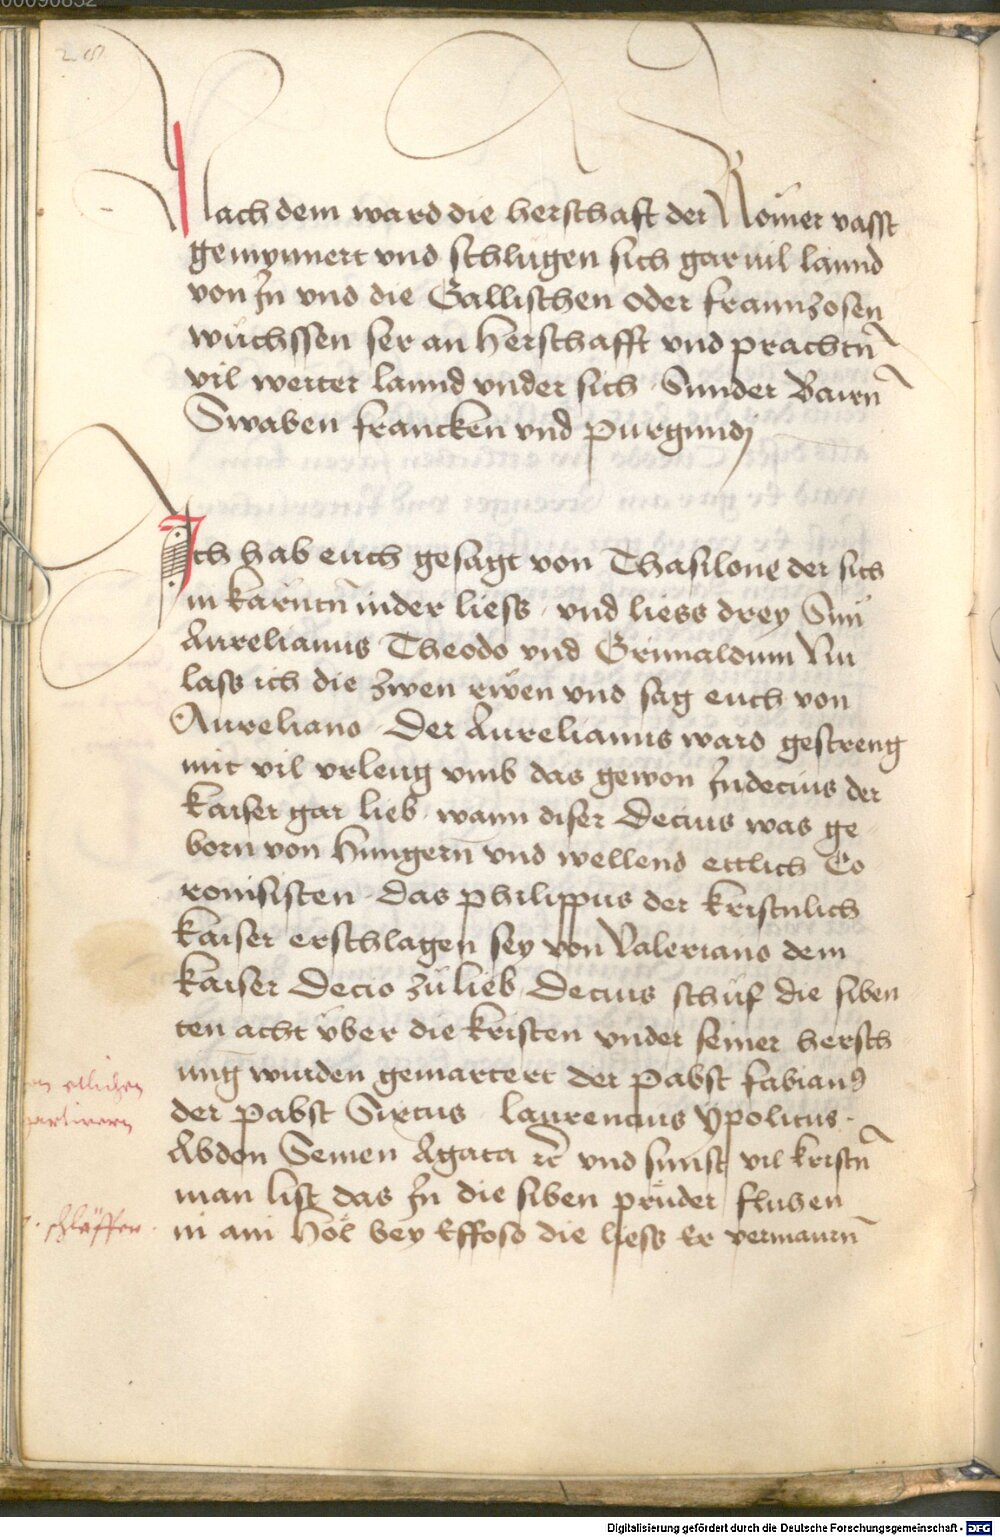 00090852
Nach dem ward die herschafft der Römer vasst
gemynnert vnd schlugen sich gar vil lannd
von Jn vnd die Gallischen oder frannzosen
wuchssen ser an herschafft vnd prachtn̄
vil weiter lannd vnder sich Sunder Bairn̄
Swaben francken vnd purgundj
Ich hab euch gesagt von Thasilone der sich
in kärntn̄ nider liess vnd liess drey Sün
Aurelianus Theodo vnd Grimaldum Nu
lass ich die zwen rwen vnd sag euch von
Aureliano Der Aurelianus ward gestreng
mit vil vrleug vmb das gewon Jn decius der
kaiser gar lieb wann diser Decius was ge
born von Hungern̄ vnd wellend ettlich Co
ronisisten das philippus der kristnlich
kaiser erschlagen sey von Valeriano dem
kaiser Decio zu lieb Decius schuf die siben
ten acht vber die kristen vnder seiner hersch
ung wurden gemartert der pabst fabianus
der pabst Sixtus laurencius ypolitus
Abdon Sennen Agata rc̄ vnd sunst vil kristn̄
man list das Jn die siben prüder fluhen
in ain Höl bey Effoso die liess Er vermaurn̄
ettlichen
martirern
schläffer
Digitalisierung gefördert durch die Deutsche Forschungsgemeinschaft - DFG